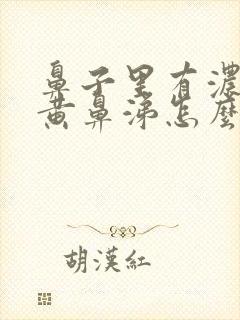 鼻子里有濃
黄鼻涕怎麽
胡漢紅